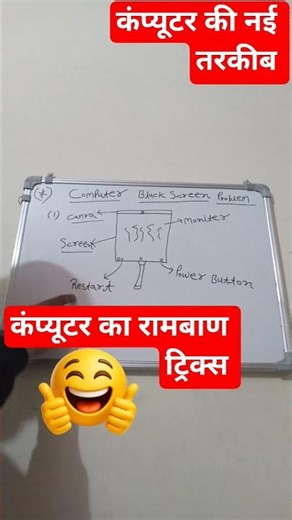 कंप्यूटर की नई
तरकीब
(*) Computer Black Screen Problem
(1) Camra
Moniter
Screen
Restart
Power Button
कंप्यूटर का रामबाण
ट्रिक्स